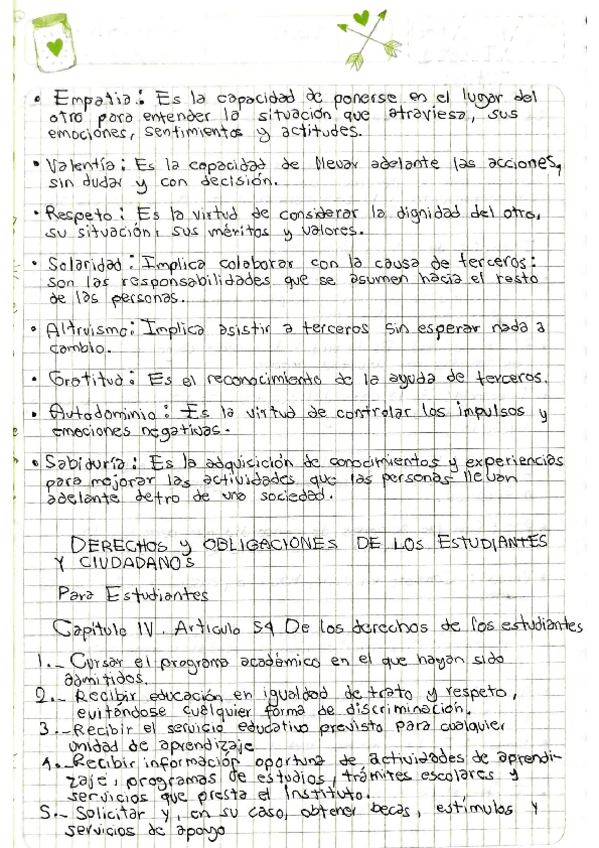 • Empatia: Es la capacidad de ponerse en el lugar del
otro para entender la situación que atraviesa, sus
emociones, sentimientos y actitudes.
• Valentía: Es la capacidad de llevar adelante las acciones,
sin dudar y con decisión.
• Respeto: Es la virtud de considerar la dignidad del otro,
su situación, sus méritos y valores.
• Solaridad: Implica colaborar con la causa de terceros:
son las responsabilidades que se asumen hacia el resto
de las personas.
• Altruismo: Implica asistir a terceros sin esperar nada a
cambio.
• Gratitud: Es el reconocimiento de la ayuda de terceros.
• Autodominio: Es la virtud de controlar los impulsos y
emociones negativas.
• Sabiduría: Es la adquisición de conocimientos y experiencias
para mejorar las actividades que las personas llevan
adelante detro de una sociedad.
DERECHOS y OBLIGACIONES DE LOS ESTUDIANTES
Y CIUDADANOS
Para Estudiantes
Capitulo IV. Articulo 54 De los derechos de los estudiantes
1.- Cursar el programa académico en el que hayan sido
admitidos.
2.- Recibir educación en igualdad de trato y respeto,
evitándose cualquier forma de discriminación.
3.- Recibir el servicio educativo previsto para cualquier
unidad de aprendizaje
4.- Recibir información oportuna de actividades de aprendi-
zaje, programas de estudios, trámites escolares y
servicios que presta el Instituto.
5.- Solicitar y, en su caso, obtener becas, estímulos y
servicios de apoyo